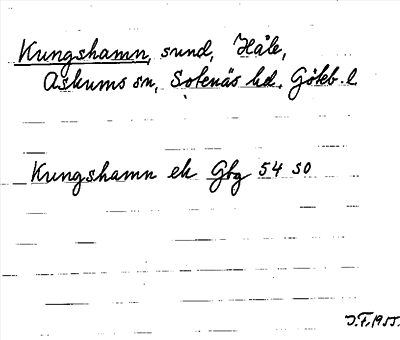 Kungshamn, sund, Håle,
Askums sn, Sotenäs hd. Göteb. l.
Kungshamn ek Gbg 54 SO
J.F. 1955.